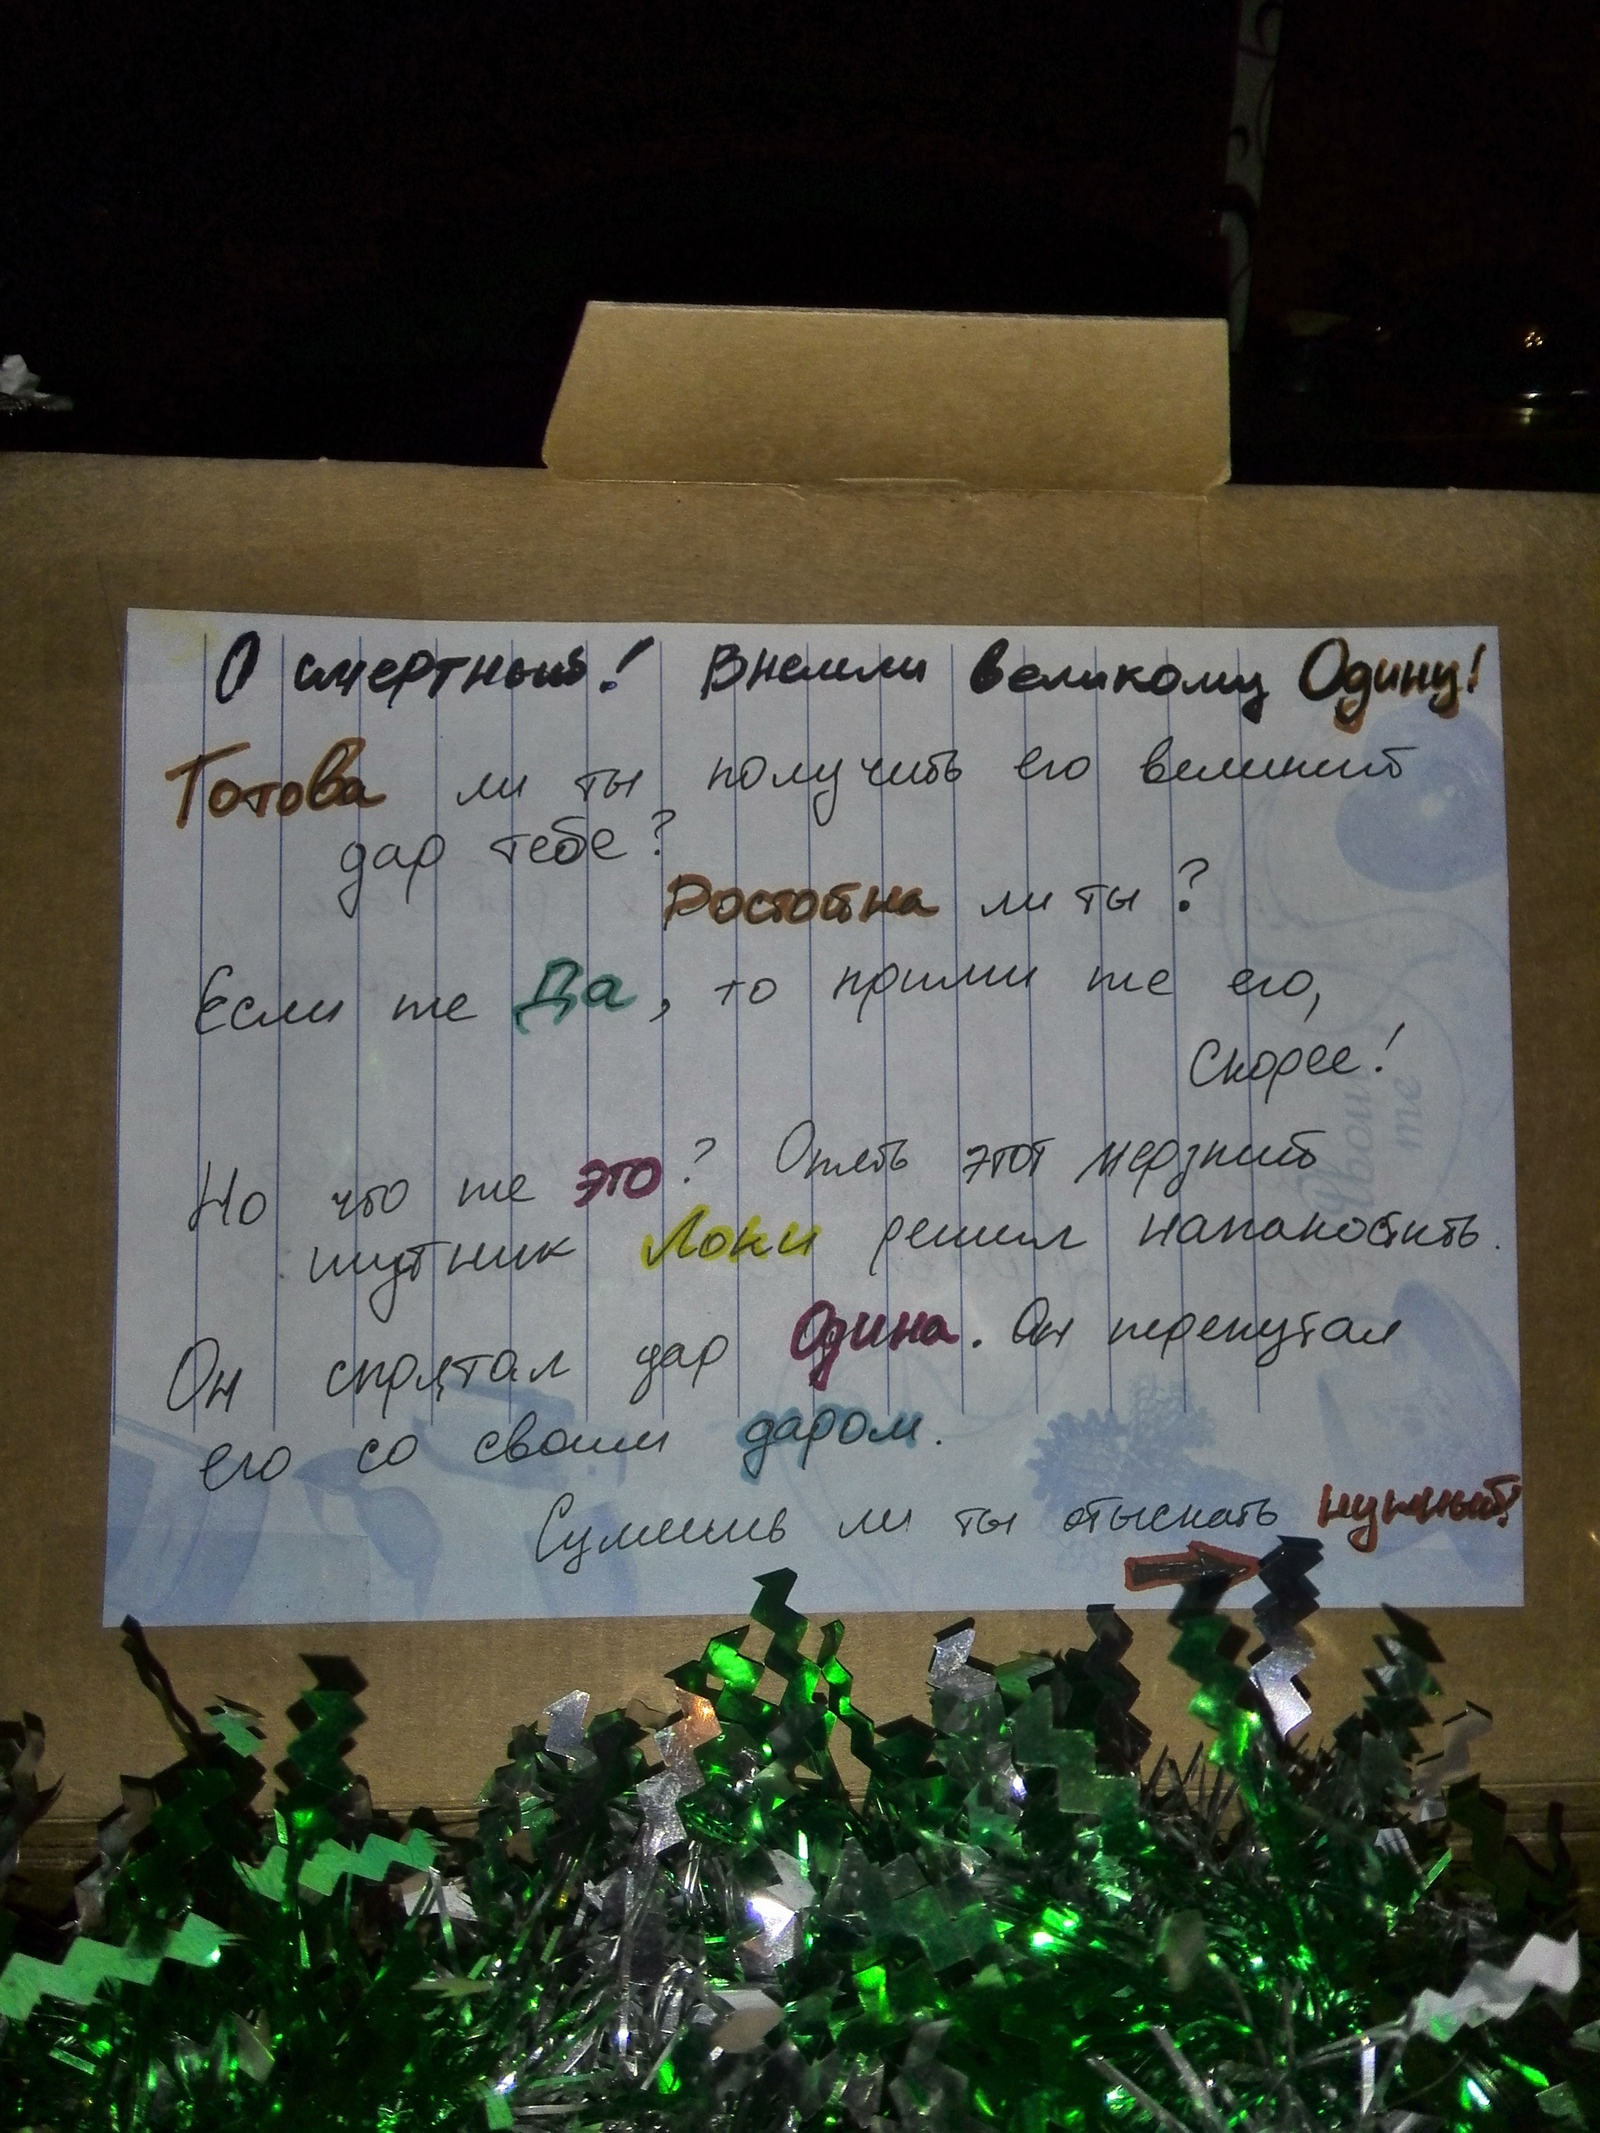 О смертный! Внемли великому Одину!
Готова ли ты получить его великий
дар тебе?
Достойна ли ты?
Если же Да, то прими же его,
Скорее!
Но что же это? Опять этот мерзкий
шутник Локи решил напакостить.
Он спрятал дар Одина. Он перепутал
его со своим даром.
Сумеешь ли ты отыскать нужный?